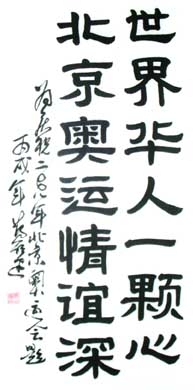 世界华人一颗心
北京奥运情谊深
为庆祝二〇〇八年北京奥运会题
丙戌年